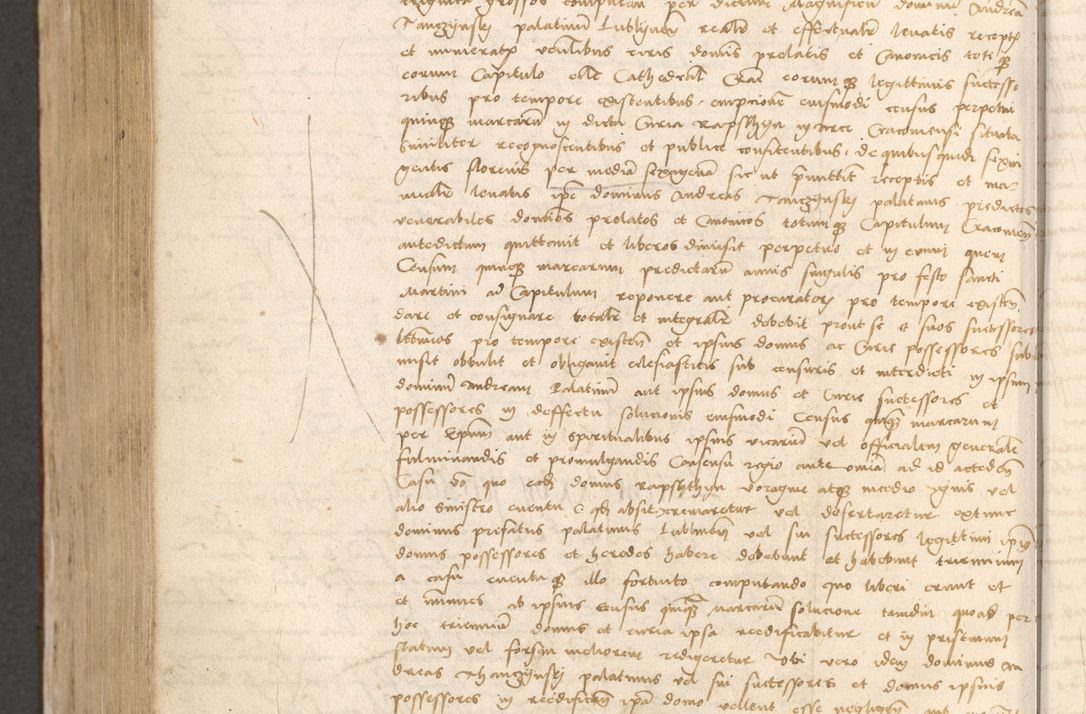 triginta grossos computan per dictum Magnificum dominum Andream
Tanczynski palatinum Lublinen realiter et effectualiter levatis receptis
et numeratis venerabilibus viris dominis prelatis et Canonicis toti q3
eorum Capitulo ecclesie Cathedralis Crac eorumq3 legittimis successo
ribus pro tempore existentibus, empcionem eiusmodi census perpetui
quinq3 marcarum in dicta Curia Rapsthyn in arce Cracoviensi situata
similiter recognoscentibus et publice confitentibus, de quibusquidem sexa
gentis florenis per mediam sexagenam sic ut premittitur receptis et ma
nualiter levatis ipse dominus Andreas Tanczynski palatinus predictos
venerabiles dominos prelatos et Canonicos totumq3 Capitulum Cracovien
antedictum quittavit et liberos dimisit perpetuo et in evum quem
Censum quinq3 marcarum predictarum annis singulis pro festo sancti
Martini ad Capitulum reponere aut procuratori pro tempore existen
dare et consignare totaliter et integraliter debebit prout se et suos successores
legittimos pro tempore existen et ipsius domus ac Curie possessores sub
misit obtulit et obligavit ecclesiasticis sub censuris et interdicti in ipsum
dominum Andream Palatinum aut ipsius domus et Curie successores et
possessores in deffectu solucionis eiusmodi Census quinq3 marcarum
per Epum aut in spiritualibus ipsius vicarium vel officialem generalem
fulminandis et promulgandis Consensu regio ante omnia ad id acceden
Casu vero quo eadem domus Rapsthyn voragine atq3 incendio ignis vel
alio sinistro eventu quod absit cremaretur vel desertaretur extunc
dominus prefatus palatinus Lublinen vel sui successores legittimi ipsius
domus possessores et heredes habere debebunt et habebunt triennium
a casu eventuq3 illo fortuito computando quo liberi erunt et
et immunes ab ipsius census quinq3 marcarum solucione tamdiu quoad per
hoc triennium domus et curia ipsa reedificabitur et in pristinum
statum vel forsan meliorem redigeretur Ubi vero idem dominus An
dreas Thanczynski palatinus vel sui successores et domus ipsius
possessores in reedificanda ipsa domo vellent esse negligentes aut